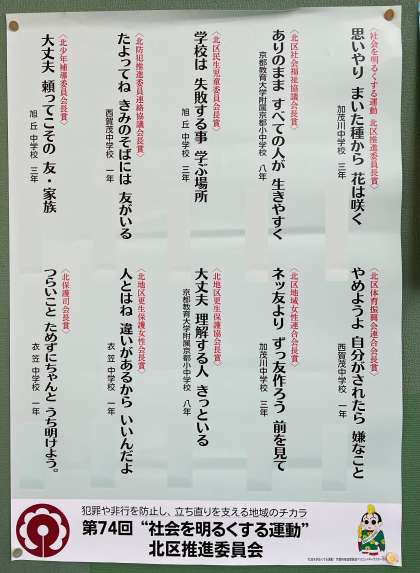 〈社会を明るくする運動 北区推進委員長賞〉
思いやり まいた種から 花は咲く
加茂川中学校 三年
〈北区社会福祉協議会長賞〉
ありのまま すべての人が 生きやすく
京都教育大学附属京都小中学校 八年
〈北区民生児童委員会長賞〉
学校は 失敗する事 学ぶ場所
旭丘中学校 三年
〈北防犯推進委員連絡協議会長賞〉
たよってね きみのそばには 友がいる
西賀茂中学校 一年
〈北少年補導委員会長賞〉
大丈夫 頼ってこその 友・家族
旭丘中学校 三年
〈北区体育振興会連合会長賞〉
やめようよ 自分がされたら 嫌なこと
西賀茂中学校 一年
〈北区地域女性連合会長賞〉
ネッ友より ずっ友作ろう 前を見て
加茂川中学校 三年
〈北地区更生保護協会長賞〉
大丈夫 理解する人 きっといる
京都教育大学附属京都小中学校 八年
〈北地区更生保護女性会長賞〉
人とはね 違いがあるから いいんだよ
衣笠中学校 一年
〈北保護司会長賞〉
つらいこと ためずにちゃんと うち明けよう。
衣笠中学校 一年
犯罪や非行を防止し、立ち直りを支える地域のチカラ
第74回 “社会を明るくする運動”
北区推進委員会